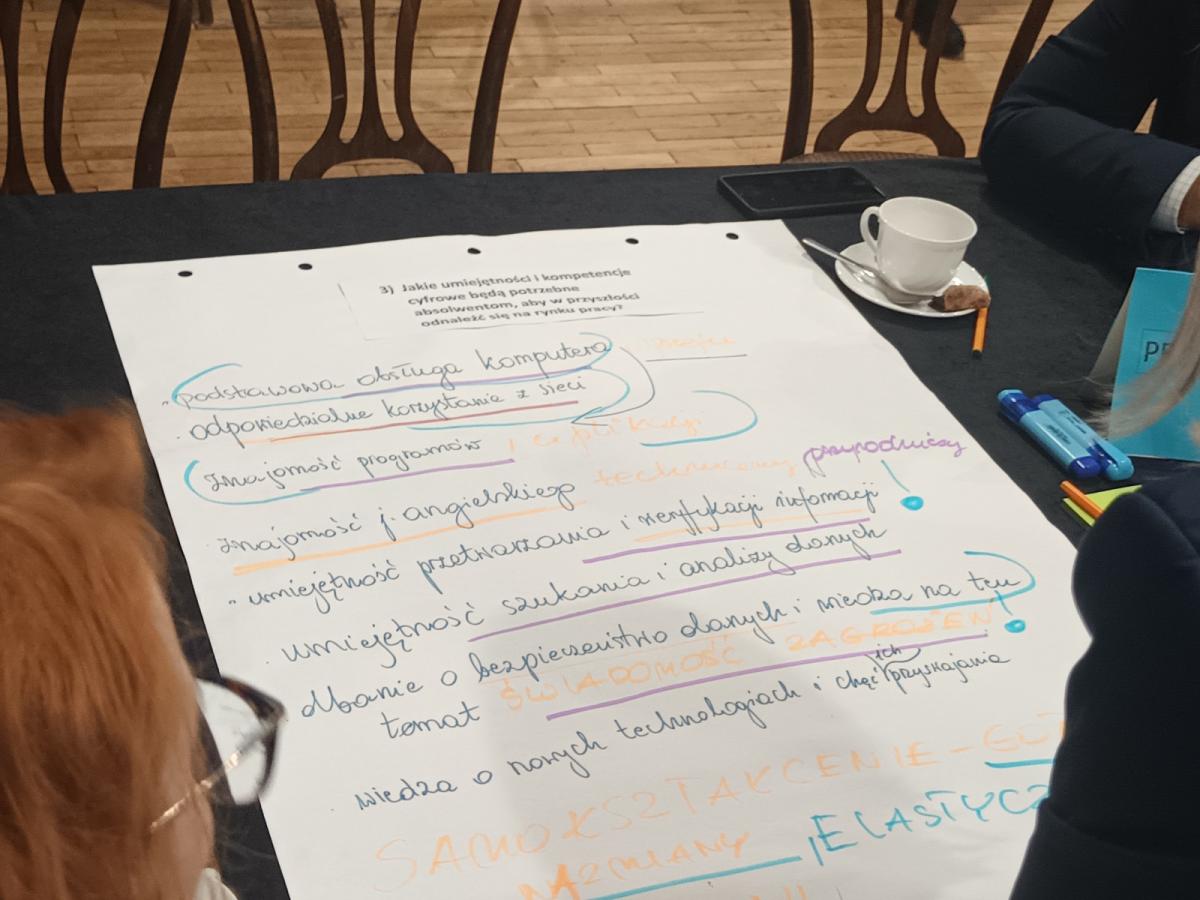 3) Jakie umiejętności i kompetencje
cyfrowe będą potrzebne
absolwentom, aby w przyszłości
odnaleźć się na rynku pracy?
podstawowa obsługa komputera
odpowiedzialne korzystanie z sieci
Znajomość programów i aplikacji
Znajomość j. angielskiego techniczny przyrodniczy
umiejętność przetwarzania i weryfikacji informacji !
umiejętność szukania i analizy danych
dbanie o bezpieczeństwo danych i wiedza na ten
temat ŚWIADOMOŚĆ ZAGROŻEŃ !
wiedza o nowych technologiach i chęć ich przyswajania
SAMOKSZTAŁCENIE -
ZMIANY, ELASTYCZ